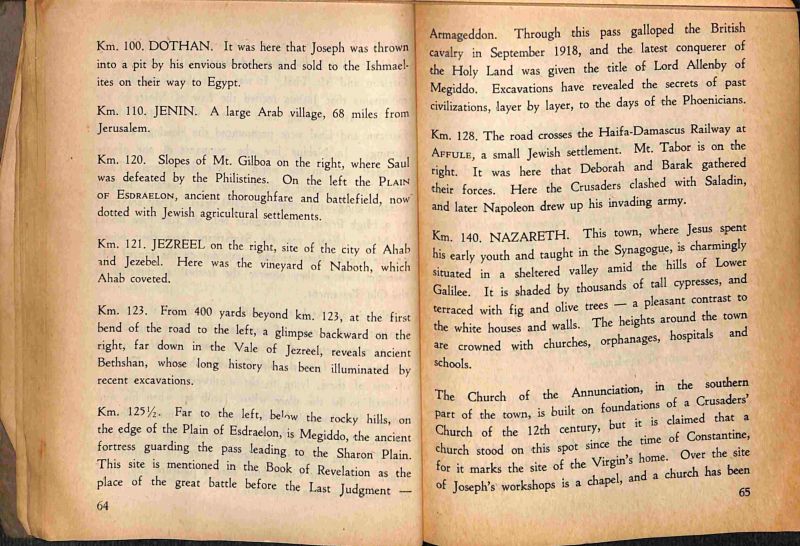 Km. 100. DOTHAN. It was here that Joseph was thrown
into a pit by his envious brothers and sold to the Ishmael-
ites on their way to Egypt.
Km. 110. JENIN. A large Arab village, 68 miles from
Jerusalem.
Km. 120. Slopes of Mt. Gilboa on the right, where Saul
was defeated by the Philistines. On the left the PLAIN
OF ESDRAELON, ancient thoroughfare and battlefield, now
dotted with Jewish agricultural settlements.
Km. 121. JEZREEL on the right, site of the city of Ahab
and Jezebel. Here was the vineyard of Naboth, which
Ahab coveted.
Km. 123. From 400 yards beyond km. 123, at the first
bend of the road to the left, a glimpse backward on the
right, far down in the Vale of Jezreel, reveals ancient
Bethshan, whose long history has been illuminated by
recent excavations.
Km. 125½. Far to the left, below the rocky hills, on
the edge of the Plain of Esdraelon, is Megiddo, the ancient
fortress guarding the pass leading to the Sharon Plain.
This site is mentioned in the Book of Revelation as the
place of the great battle before the Last Judgment —
64
Armageddon. Through this pass galloped the British
cavalry in September 1918, and the latest conquerer of
the Holy Land was given the title of Lord Allenby of
Megiddo. Excavations have revealed the secrets of past
civilizations, layer by layer, to the days of the Phoenicians.
Km. 128. The road crosses the Haifa-Damascus Railway at
AFFULE, a small Jewish settlement. Mt. Tabor is on the
right. It was here that Deborah and Barak gathered
their forces. Here the Crusaders clashed with Saladin,
and later Napoleon drew up his invading army.
Km. 140. NAZARETH. This town, where Jesus spent
his early youth and taught in the Synagogue, is charmingly
situated in a sheltered valley amid the hills of Lower
Galilee. It is shaded by thousands of tall cypresses, and
terraced with fig and olive trees — a pleasant contrast to
the white houses and walls. The heights around the town
are crowned with churches, orphanages, hospitals and
schools.
The Church of the Annunciation, in the southern
part of the town, is built on foundations of a Crusaders'
Church of the 12th century, but it is claimed that a
church stood on this spot since the time of Constantine,
for it marks the site of the Virgin's home. Over the site
of Joseph's workshops is a chapel, and a church has been
65